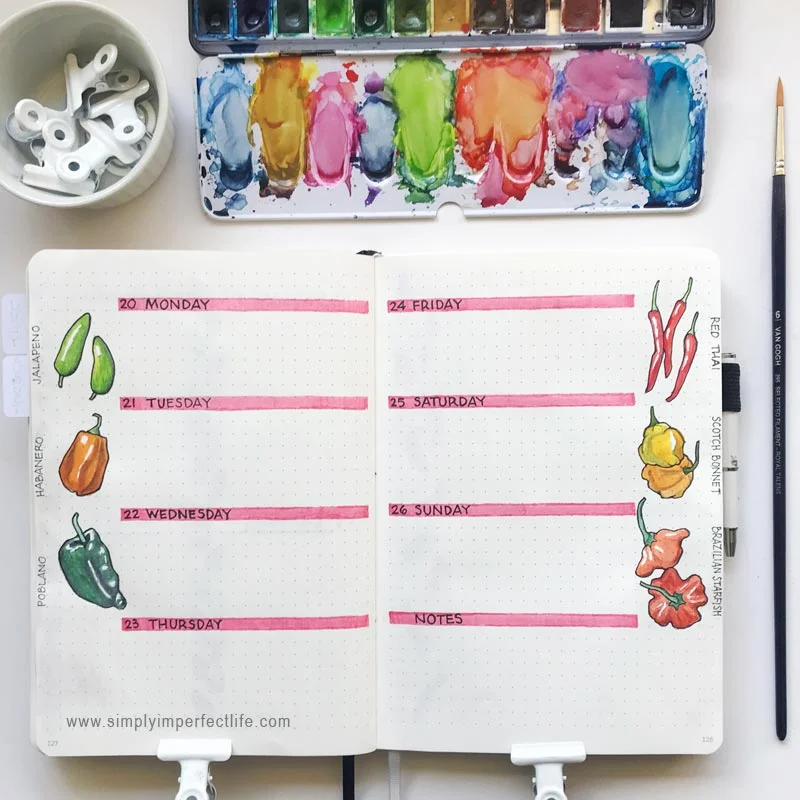 20 MONDAY
21 TUESDAY
22 WEDNESDAY
23 THURSDAY
JALAPENO
HABANERO
POBLANO
www.simplyimperfectlife.com
127
24 FRIDAY
25 SATURDAY
26 SUNDAY
NOTES
RED THAI
SCOTCH BONNET
BRAZILIAN STARFISH
128
6 VAN GOGH
SELECTED FILAMENT - ROYAL TALENS